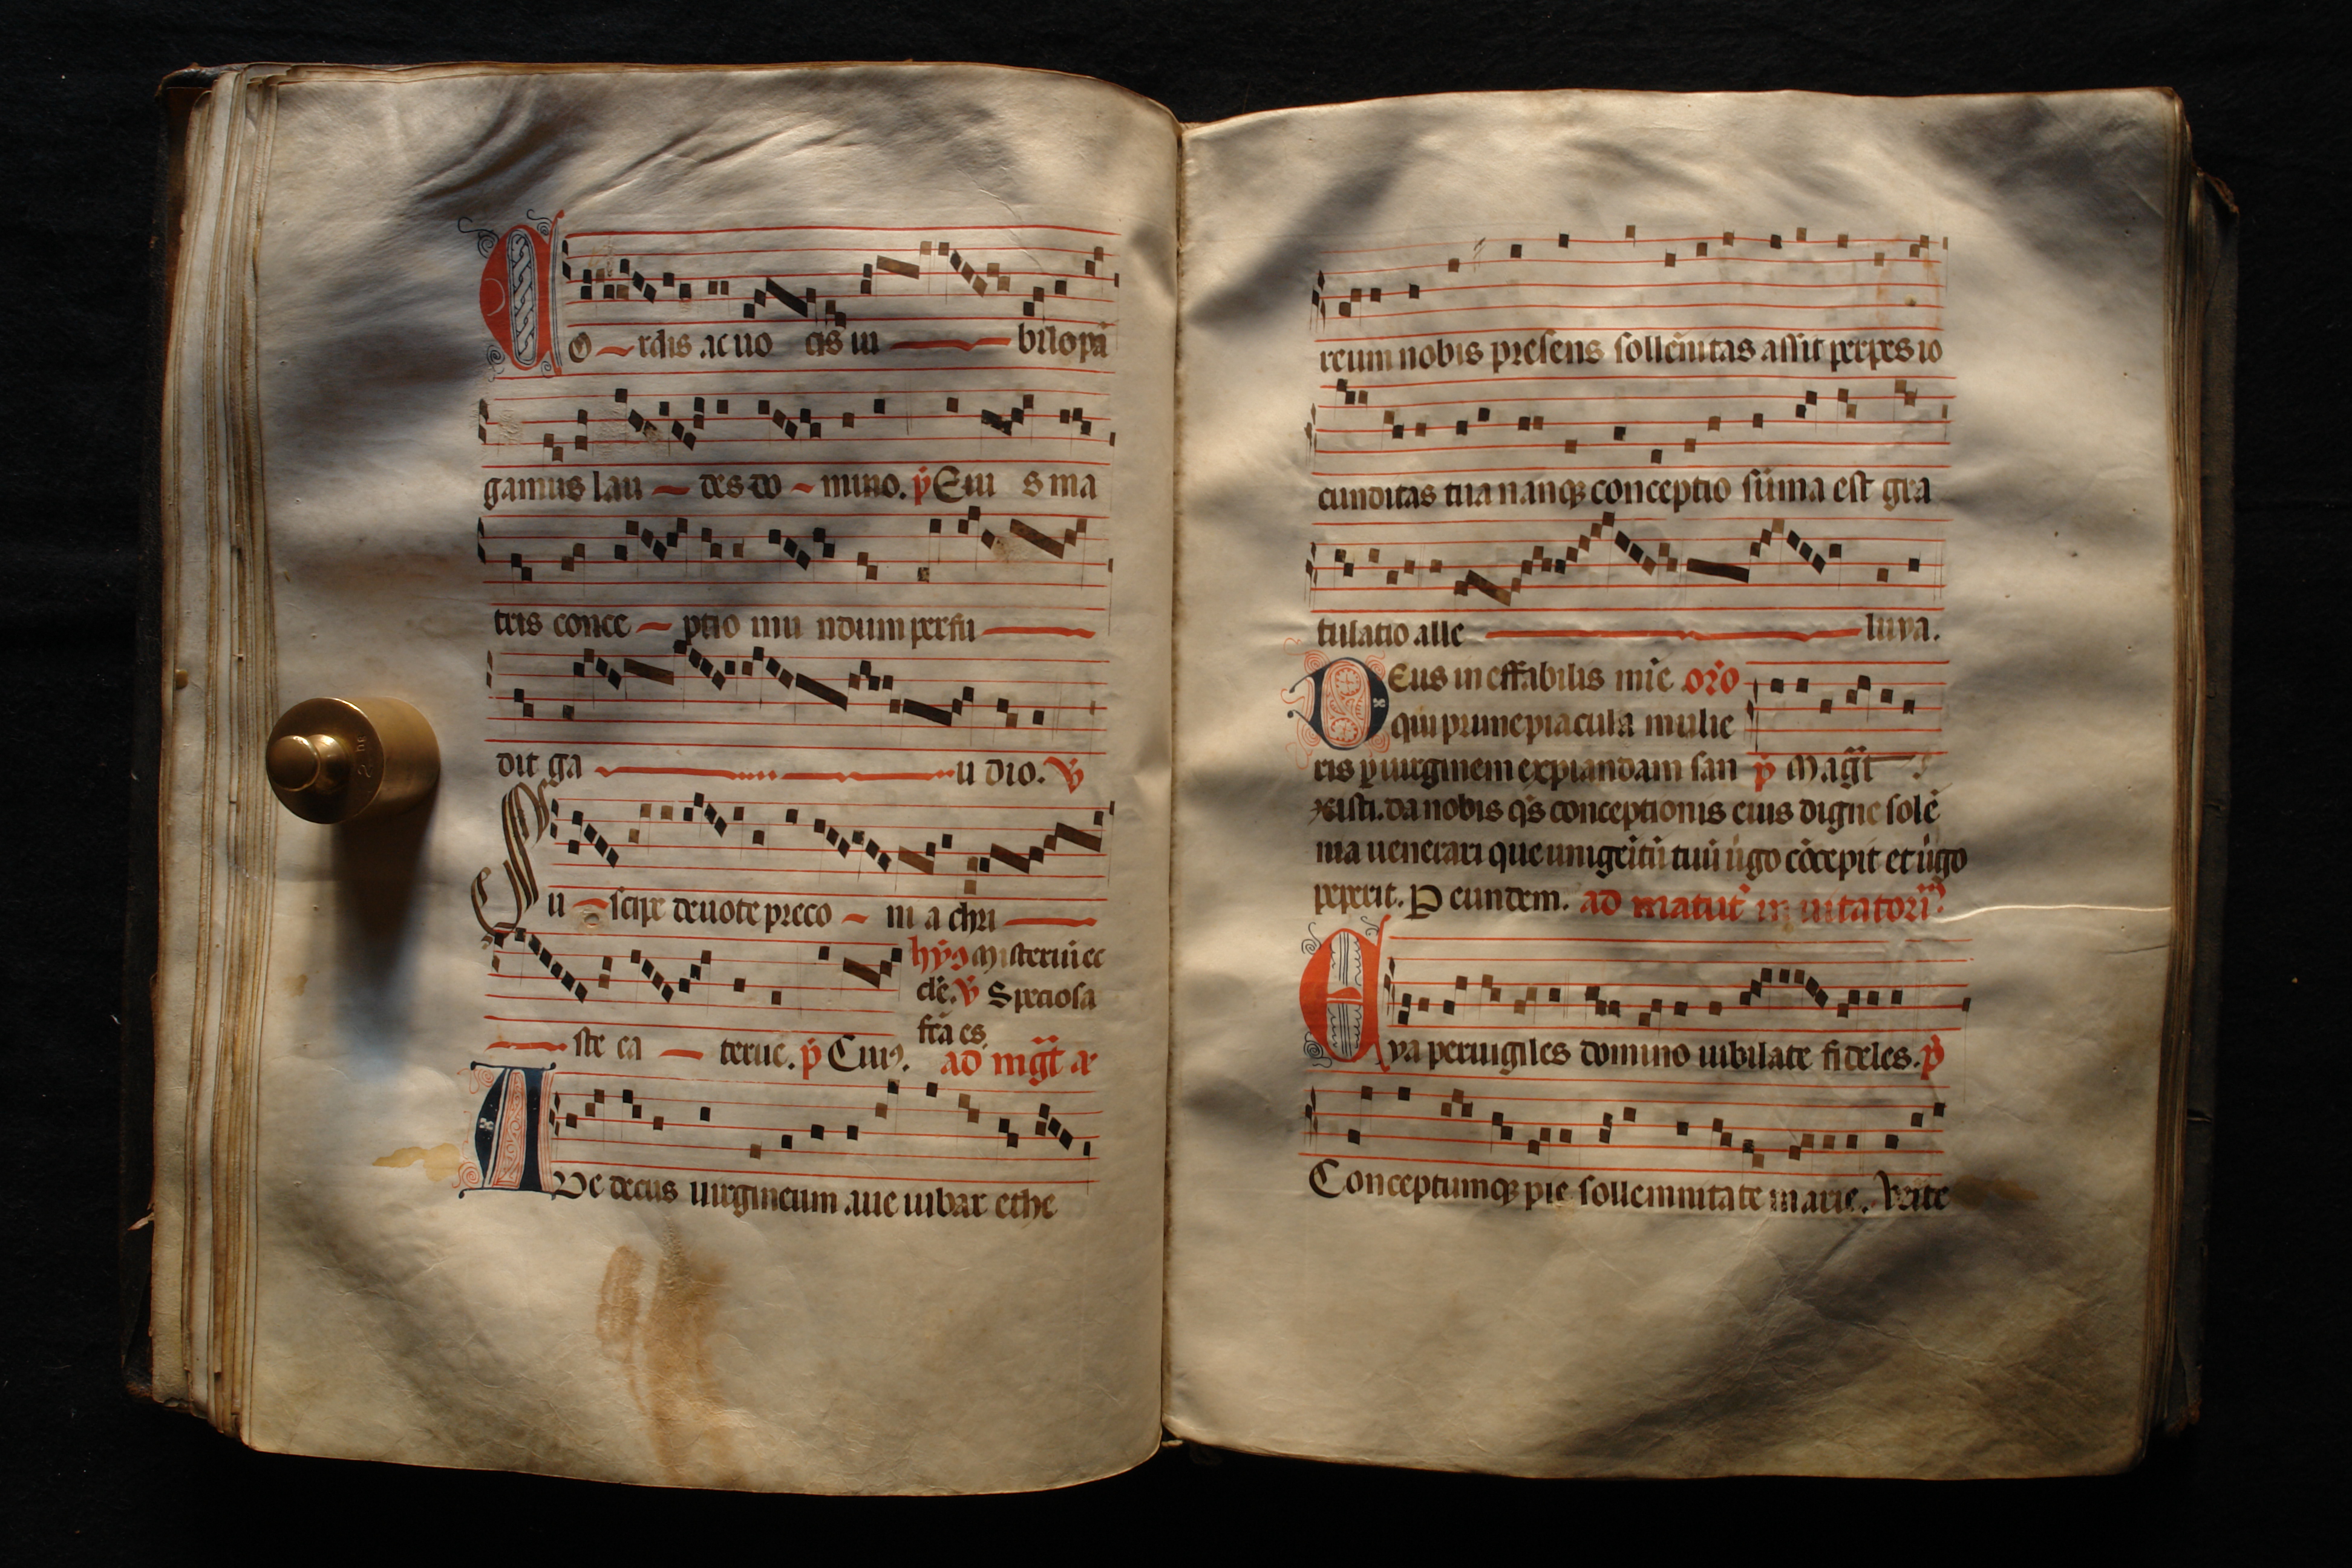 CO rdis ac uo cis iu bilo pā
gamus lau des do mino. p̄ Eiu s ma
tris conce ptio mu ndum perfu
dit ga u dio. V̄
Su scipe deuote preco ni a chri
hȳ9 Misterium ec
cle. V̄ Speciosa
fcā es
ste ca terue. p̄ Cui9. ad mḡt ā
AUe decus uirgineum aue iubar ethe
reum nobis presens sollēnitas assit perpes io
cunditas tua nanq; conceptio sūma est gra
tulatio alle luya.
DEus ineffabilis mīe orō
qui prime piacula mulie
ris p uirginem expiandam san p̄ Magt̄
xisti. da nobis q̄s conceptionis eius digne solē
nia uenerari que unigeitū tuū uḡo cōcepit et uḡo
peperit. P eundem. ad matut̄ inuitatori̅
Eya peruigiles domino iubilate fideles. p̄
Conceptumq; pie sollemnitate marie. Uenite